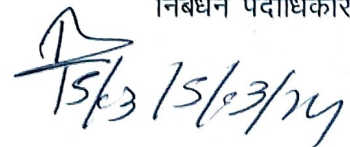 निबंधन पदाधिकारी
15/3 15/3/24